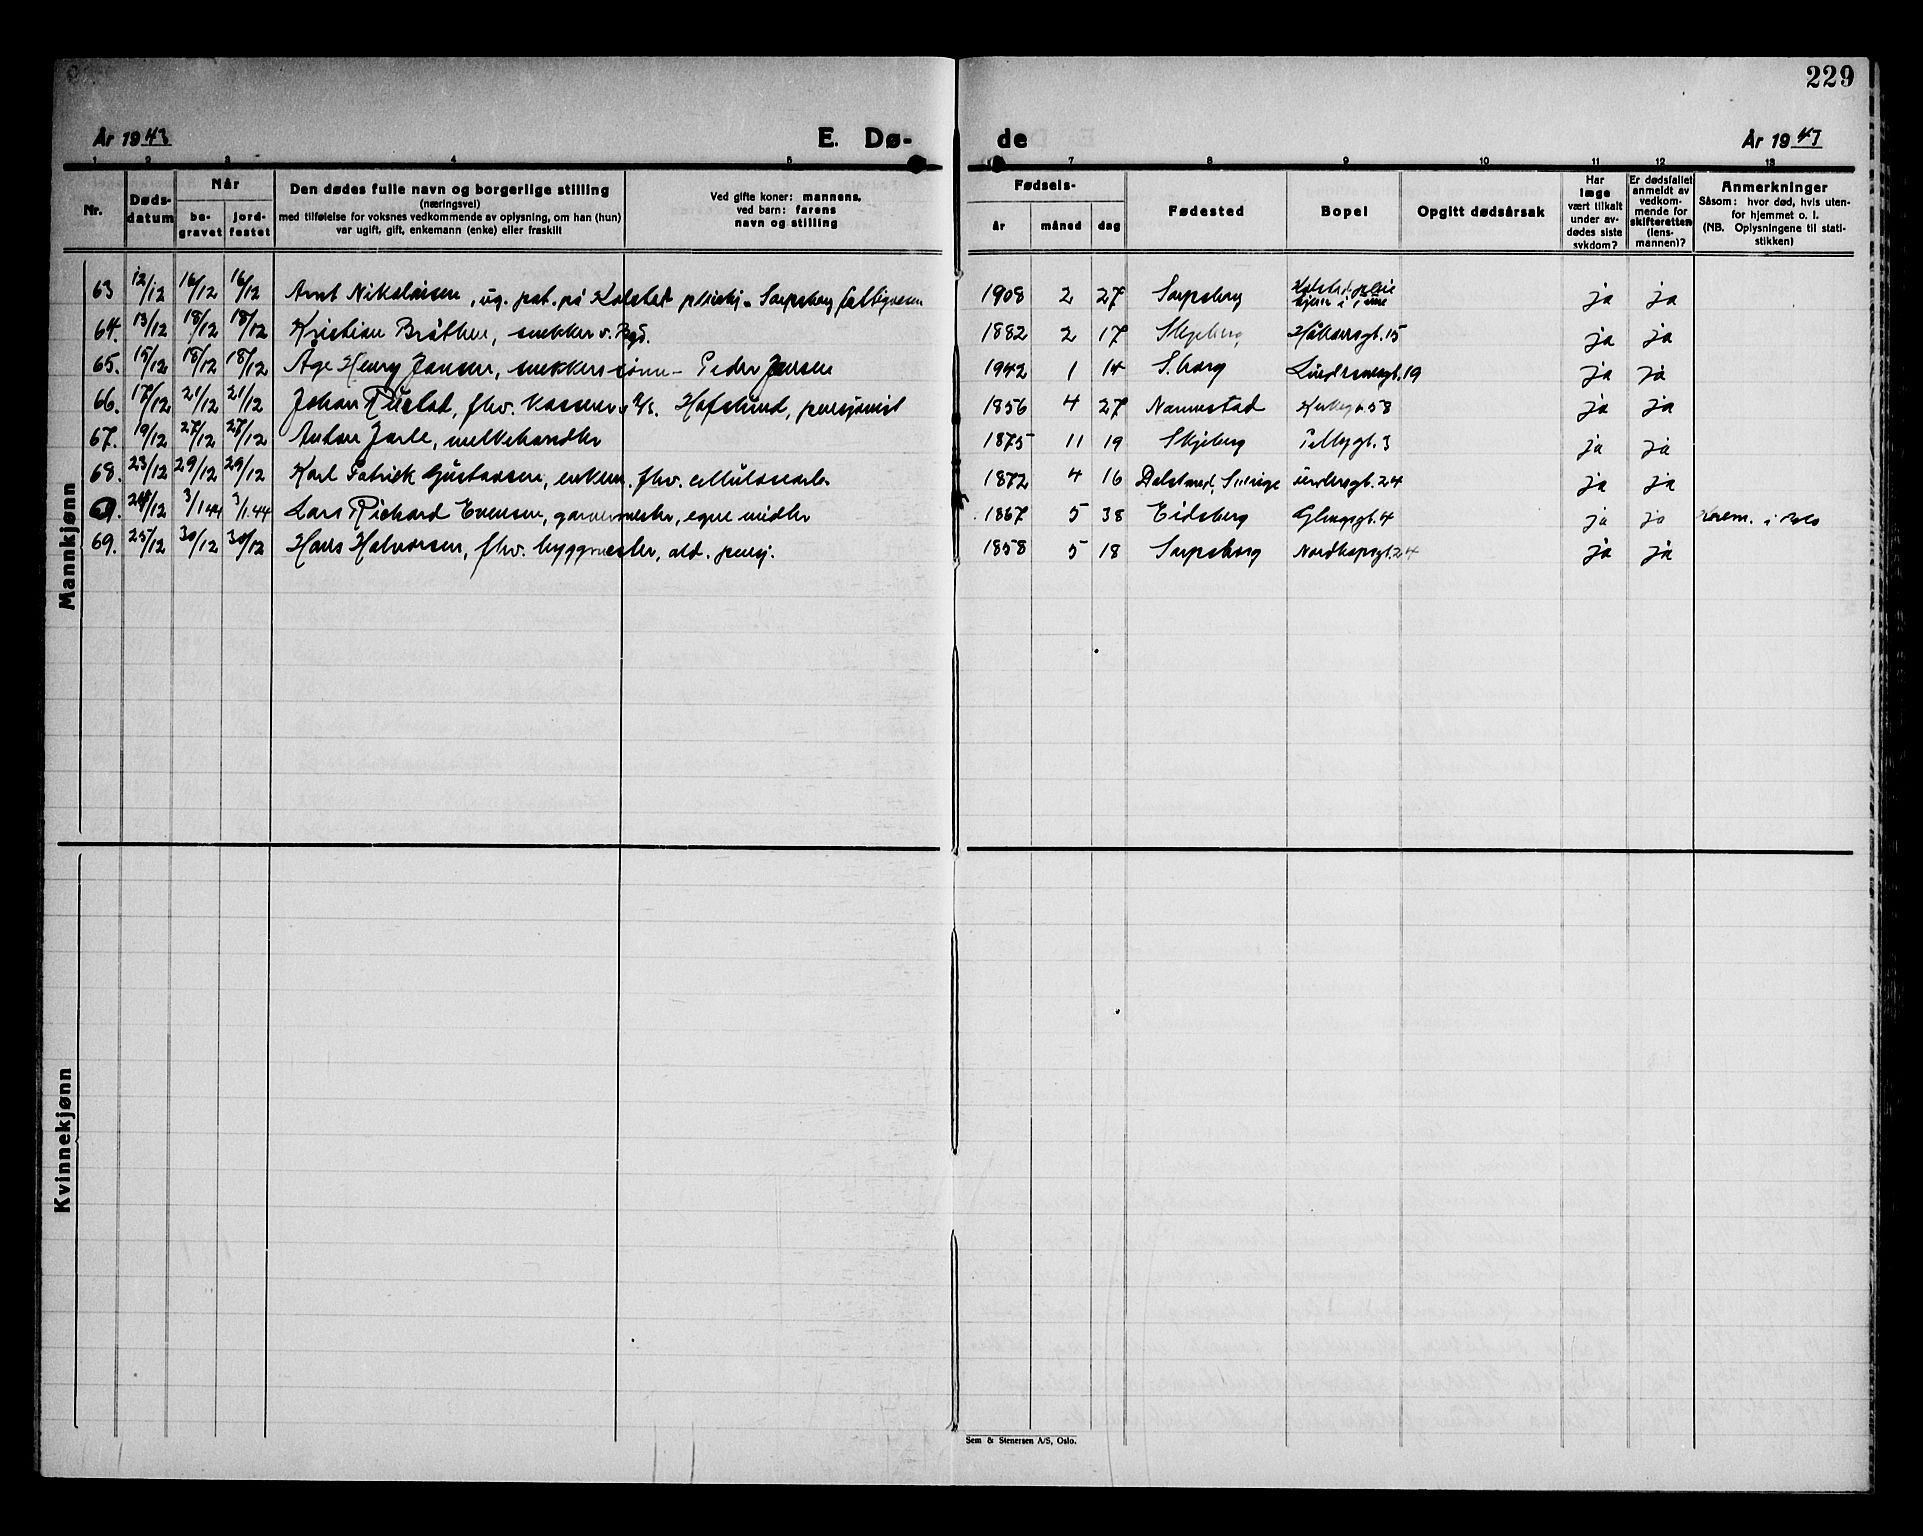 229
År 1943 E. Dø- de År 1943
1 2 3 4 5 7 8 9 10 11 12 13
Nr. Døds-datum Når be-gravet jord-festet Den dødes fulle navn og borgerlige stilling (næringsvei) med tilføielse for voksnes vedkommende av oplysning, om han (hun) var ugift, gift, enkemann (enke) eller fraskilt Ved gifte koner: mannens, ved barn: farens navn og stilling Fødsels- år måned dag Fødested Bopel Opgitt dødsårsak Har læge vært tilkalt under av-dødes siste sykdom? Er dødsfallet anmeldt av vedkom-mende for skifteretten (lens-mannen)? Anmerkninger Såsom: hvor død, hvis uten-for hjemmet o. l. (NB. Oplysningene til stati-stikken)
Mannkjønn
63 12/12 16/12 16/12 Arnt Nikolaisen, ug. pat. på Kolstad pleiehj. Sarpsborg fattigvesen 1908 2 27 Sarpsborg Kolstad pleie ja ja
64. 13/12 18/12 18/12 Kristian Bråthen, snekker v. Borg. 1882 2 17 Skjeberg Håkonsgt. 15 ja ja
65. 15/12 18/12 18/12 Åge Henry Jansen, snekkers sønn - Peder Jansen 1942 1 14 S.borg 19 ja ja
66. 17/12 21/12 21/12 Johan Rustad, fhv. kasserer v. A/S. Hafslund, pensjonist 1856 4 27 Nannestad Kirkegt. 58 ja ja
67. 19/12 27/12 27/12 Anton Jarle, melkehandler 1875 11 19 Skjeberg 3 ja ja
68. 23/12 29/12 29/12 Karl Patrick Gustavsen, enkem. fhv. cellulosearb. 1872 4 16 Dalsland, Sverige 24 ja ja
24/12 3/1.44 3/1.44 Lars Richard Evensen, garvermester, egne midler 1867 5 38 Eidsberg Glengsgt. 4 ja ja Krem. i Oslo
69. 25/12 30/12 30/12 Hans Halvorsen, fhv. byggmester, ald. pensj. 1858 5 18 Sarpsborg Nordkapsgt. 24 ja ja
Kvinnekjønn
Sem & Stenersen A/S, Oslo.